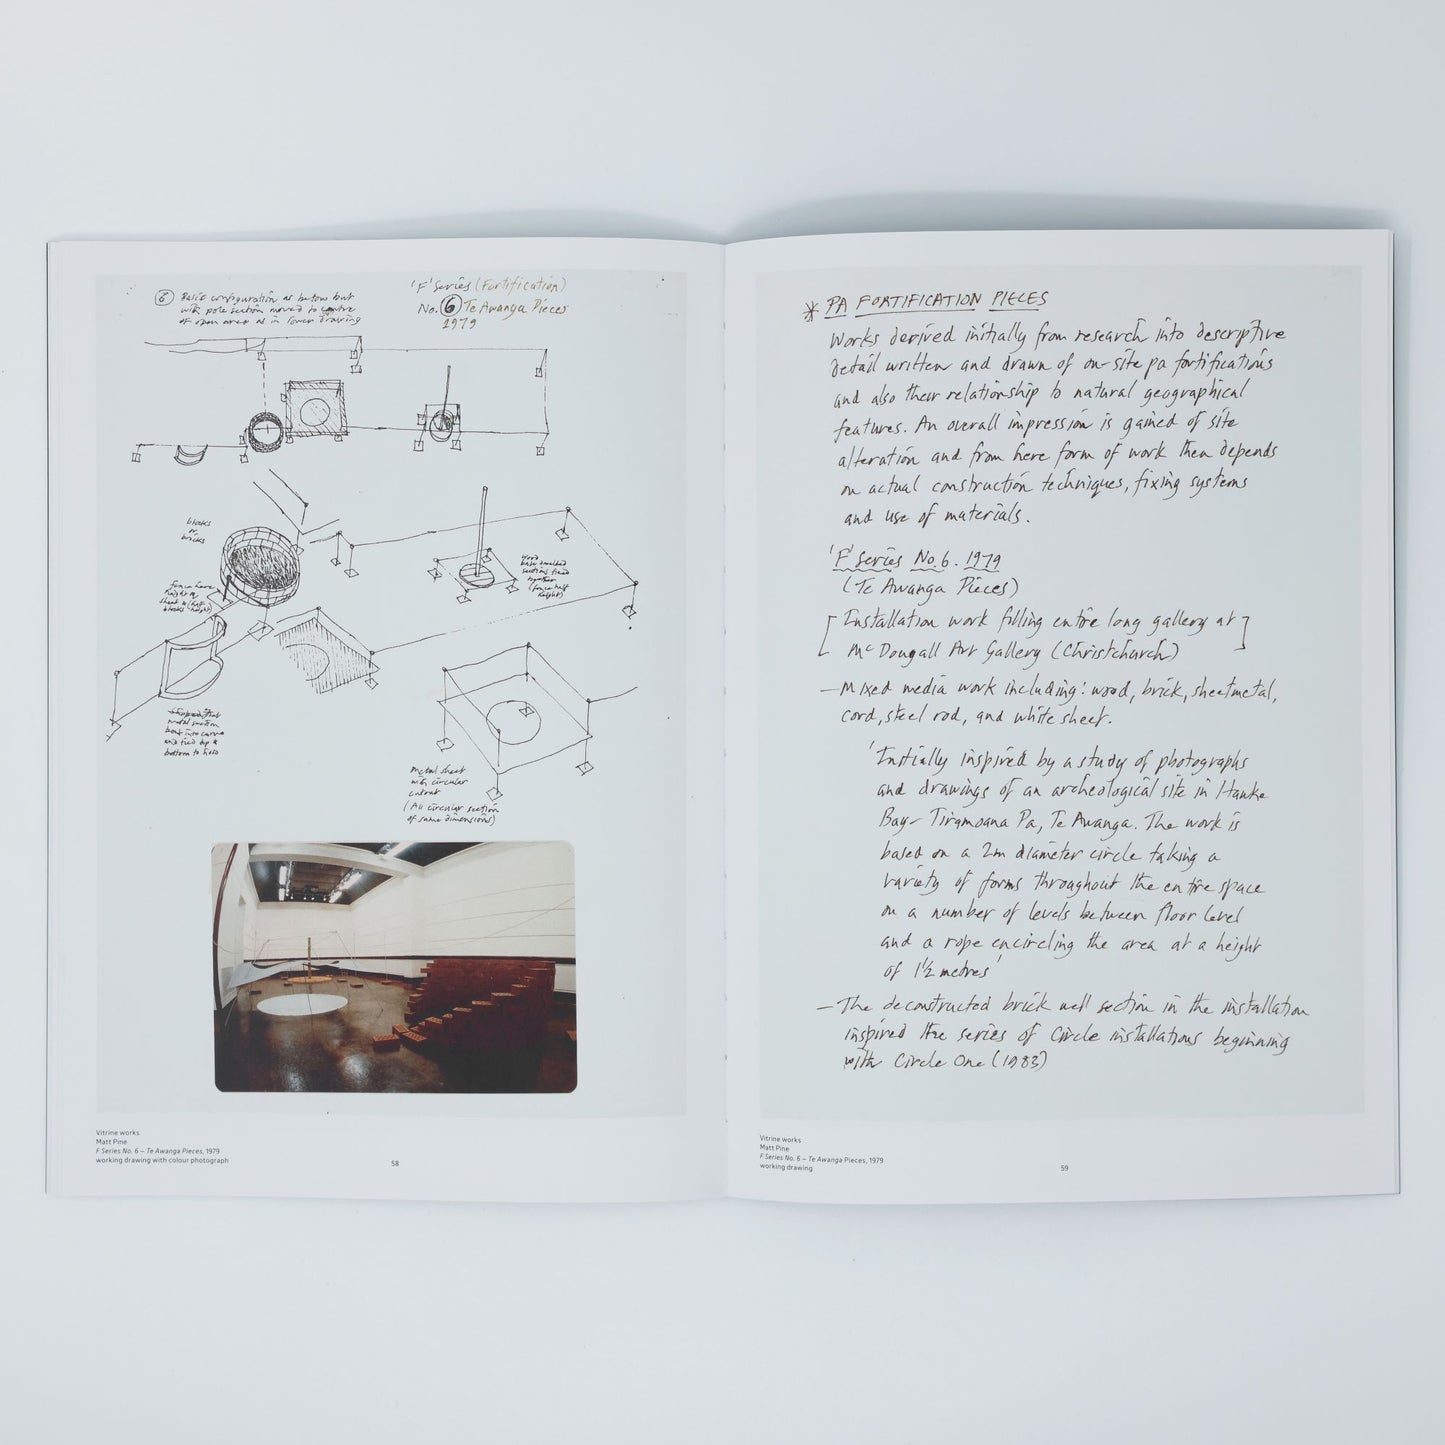 6 Basic configuration as below but
with pole section moved to centre
of open area as in lower drawing
'F' Series (Fortification)
No. 6 Te Awanga Pieces
1979
blocks
or
bricks
Wood
sections fixed
together
(fence half
height)
fence here
height of
sheet
metal section
bent into curve
and tied top &
bottom to hold
Metal sheet
with circular
cutout
(All circular section
of same dimensions)
Vitrine works
Matt Pine
F Series No. 6 – Te Awanga Pieces, 1979
working drawing with colour photograph
58
* PA FORTIFICATION PIECES
Works derived initially from research into descriptive
detail written and drawn of on-site pa fortifications
and also their relationship to natural geographical
features. An overall impression is gained of site
alteration and from here form of work then depends
on actual construction techniques, fixing systems
and use of materials.
'F' Series No. 6. 1979
(Te Awanga Pieces)
[Installation work filling entire long gallery at
Mc Dougall Art Gallery (Christchurch)]
– Mixed media work including: wood, brick, sheetmetal,
cord, steel rod, and white sheet.
'Initially inspired by a study of photographs
and drawings of an archeological site in Hawke
Bay – Tiromoana Pa, Te Awanga. The work is
based on a 2m diameter circle taking a
variety of forms throughout the entire space
on a number of levels between floor level
and a rope encircling the area at a height
of 1½ metres'
– The deconstructed brick wall section in the installation
inspired the series of Circle installations beginning
with Circle One (1983)
Vitrine works
Matt Pine
F Series No. 6 – Te Awanga Pieces, 1979
working drawing
59